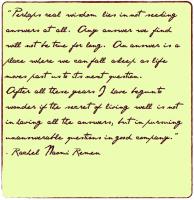 "Perhaps real wisdom lies in not seeking
answers at all. Any answer we find
will not be true for long. An answer is a
place where we can fall asleep as life
moves past us to its next question.
After all these years I have begun to
wonder if the secret of living well is not
in having all the answers, but in pursuing
unanswerable questions in good company."
- Rachel Naomi Remen